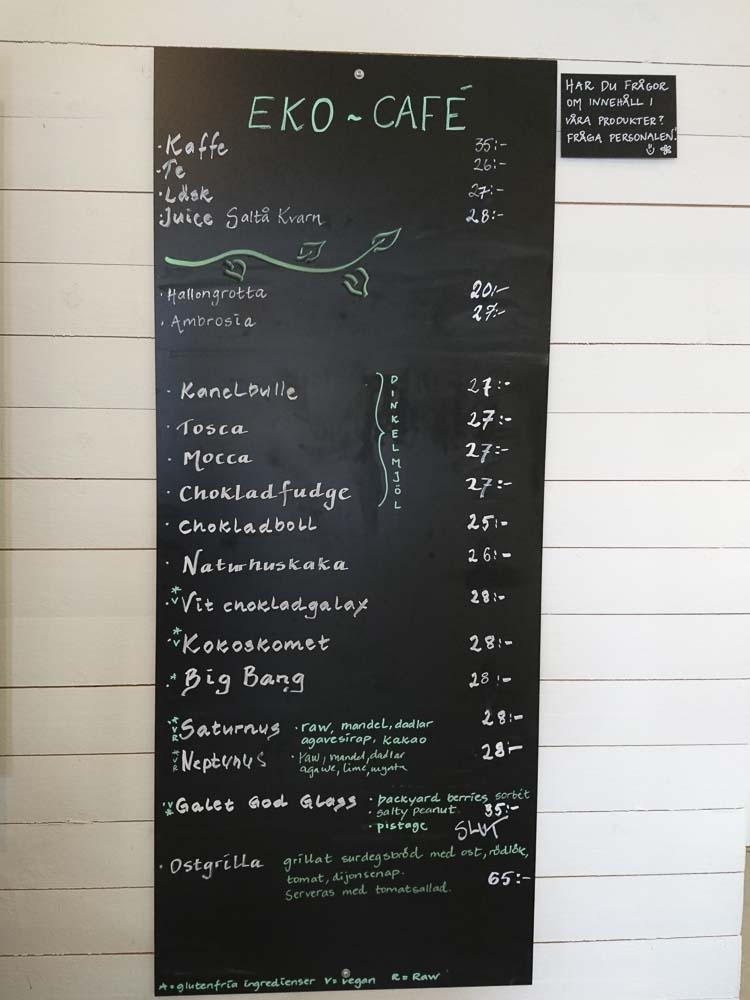 EKO ~ CAFÉ
· Kaffe 35:-
· Te 26:-
· Läsk 27:-
· Juice Saltå Kvarn 28:-
· Hallongrotta 20:-
· Ambrosia 27:-
· Kanelbulle 27:-
· Tosca 27:-
· Mocca 27:-
· Chokladfudge 27:-
DINKELMJÖL
· Chokladboll 25:-
· Naturhuskaka 26:-
* V · Vit chokladgalax 28:-
* V · Kokoskomet 28:-
* · Big Bang 28:-
* V R · Saturnus · raw, mandel, dadlar 28:-
agavesirap, kakao
* V R Neptunus · raw, mandel, dadlar 28:-
agave, lime, mynta
V * · Galet God Glass · backyard berries sorbét
· salty peanut 35:-
· pistage SLUT
· Ostgrilla grillat surdegsbröd med ost, rödlök,
tomat, dijonsenap. 65:-
Serveras med tomatsallad.
* = glutenfria ingredienser V = vegan R = Raw
HAR DU FRÅGOR
OM INNEHÅLL I
VÅRA PRODUKTER?
FRÅGA PERSONALEN!